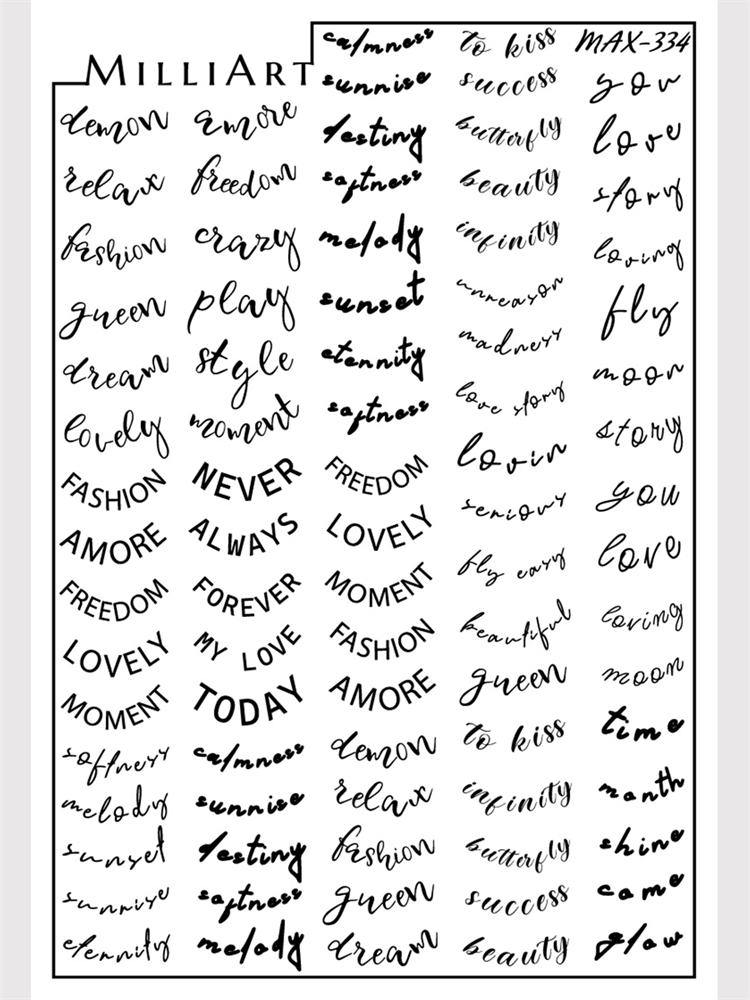 MILLIART
MAX-334
demon
relax
fashion
gueen
dream
lovely
FASHION
AMORE
FREEDOM
LOVELY
MOMENT
softness
melody
sunset
sunrise
eternity
amore
freedom
crazy
play
style
moment
NEVER
ALWAYS
FOREVER
MY LOVE
TODAY
calmness
sunrise
destiny
softness
melody
calmness
sunrise
destiny
softness
melody
sunset
eternity
softness
FREEDOM
LOVELY
MOMENT
FASHION
AMORE
demon
relax
fashion
gueen
dream
to kiss
success
butterfly
beauty
infinity
unreason
madness
love story
lovin
serious
fly easy
beautiful
gueen
to kiss
infinity
butterfly
success
beauty
you
love
story
loving
fly
moon
story
you
love
loving
moon
time
month
shine
come
glow